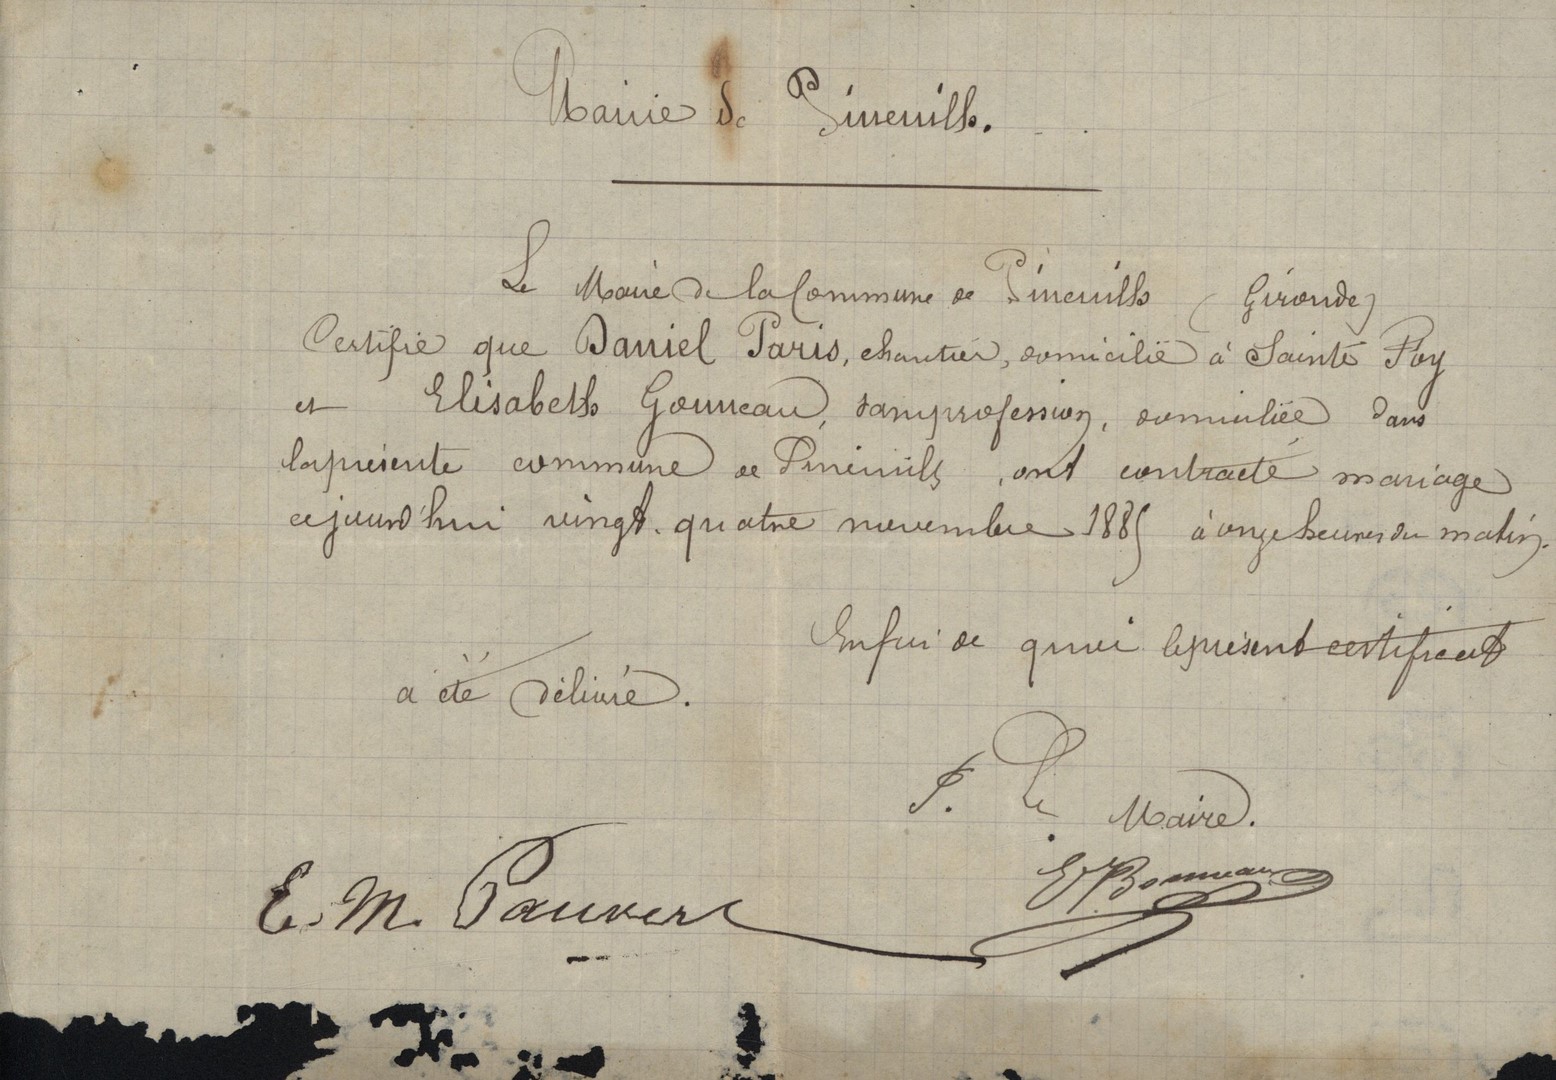 Mairie de Pineuilh.
Le Maire de la Commune de Pineuilh (Gironde)
Certifie que Daniel Paris, chantier, domicilié à Sainte Foy
et Elisabeth Gonneau, sans profession, domiciliée dans
la présente commune de Pineuilh, ont contracté mariage
ce jourd'hui vingt-quatre novembre 1885 à onze heures du matin.
En foi de quoi le présent certificat
a été délivré.
P. Le Maire.
E. M. Pauvert